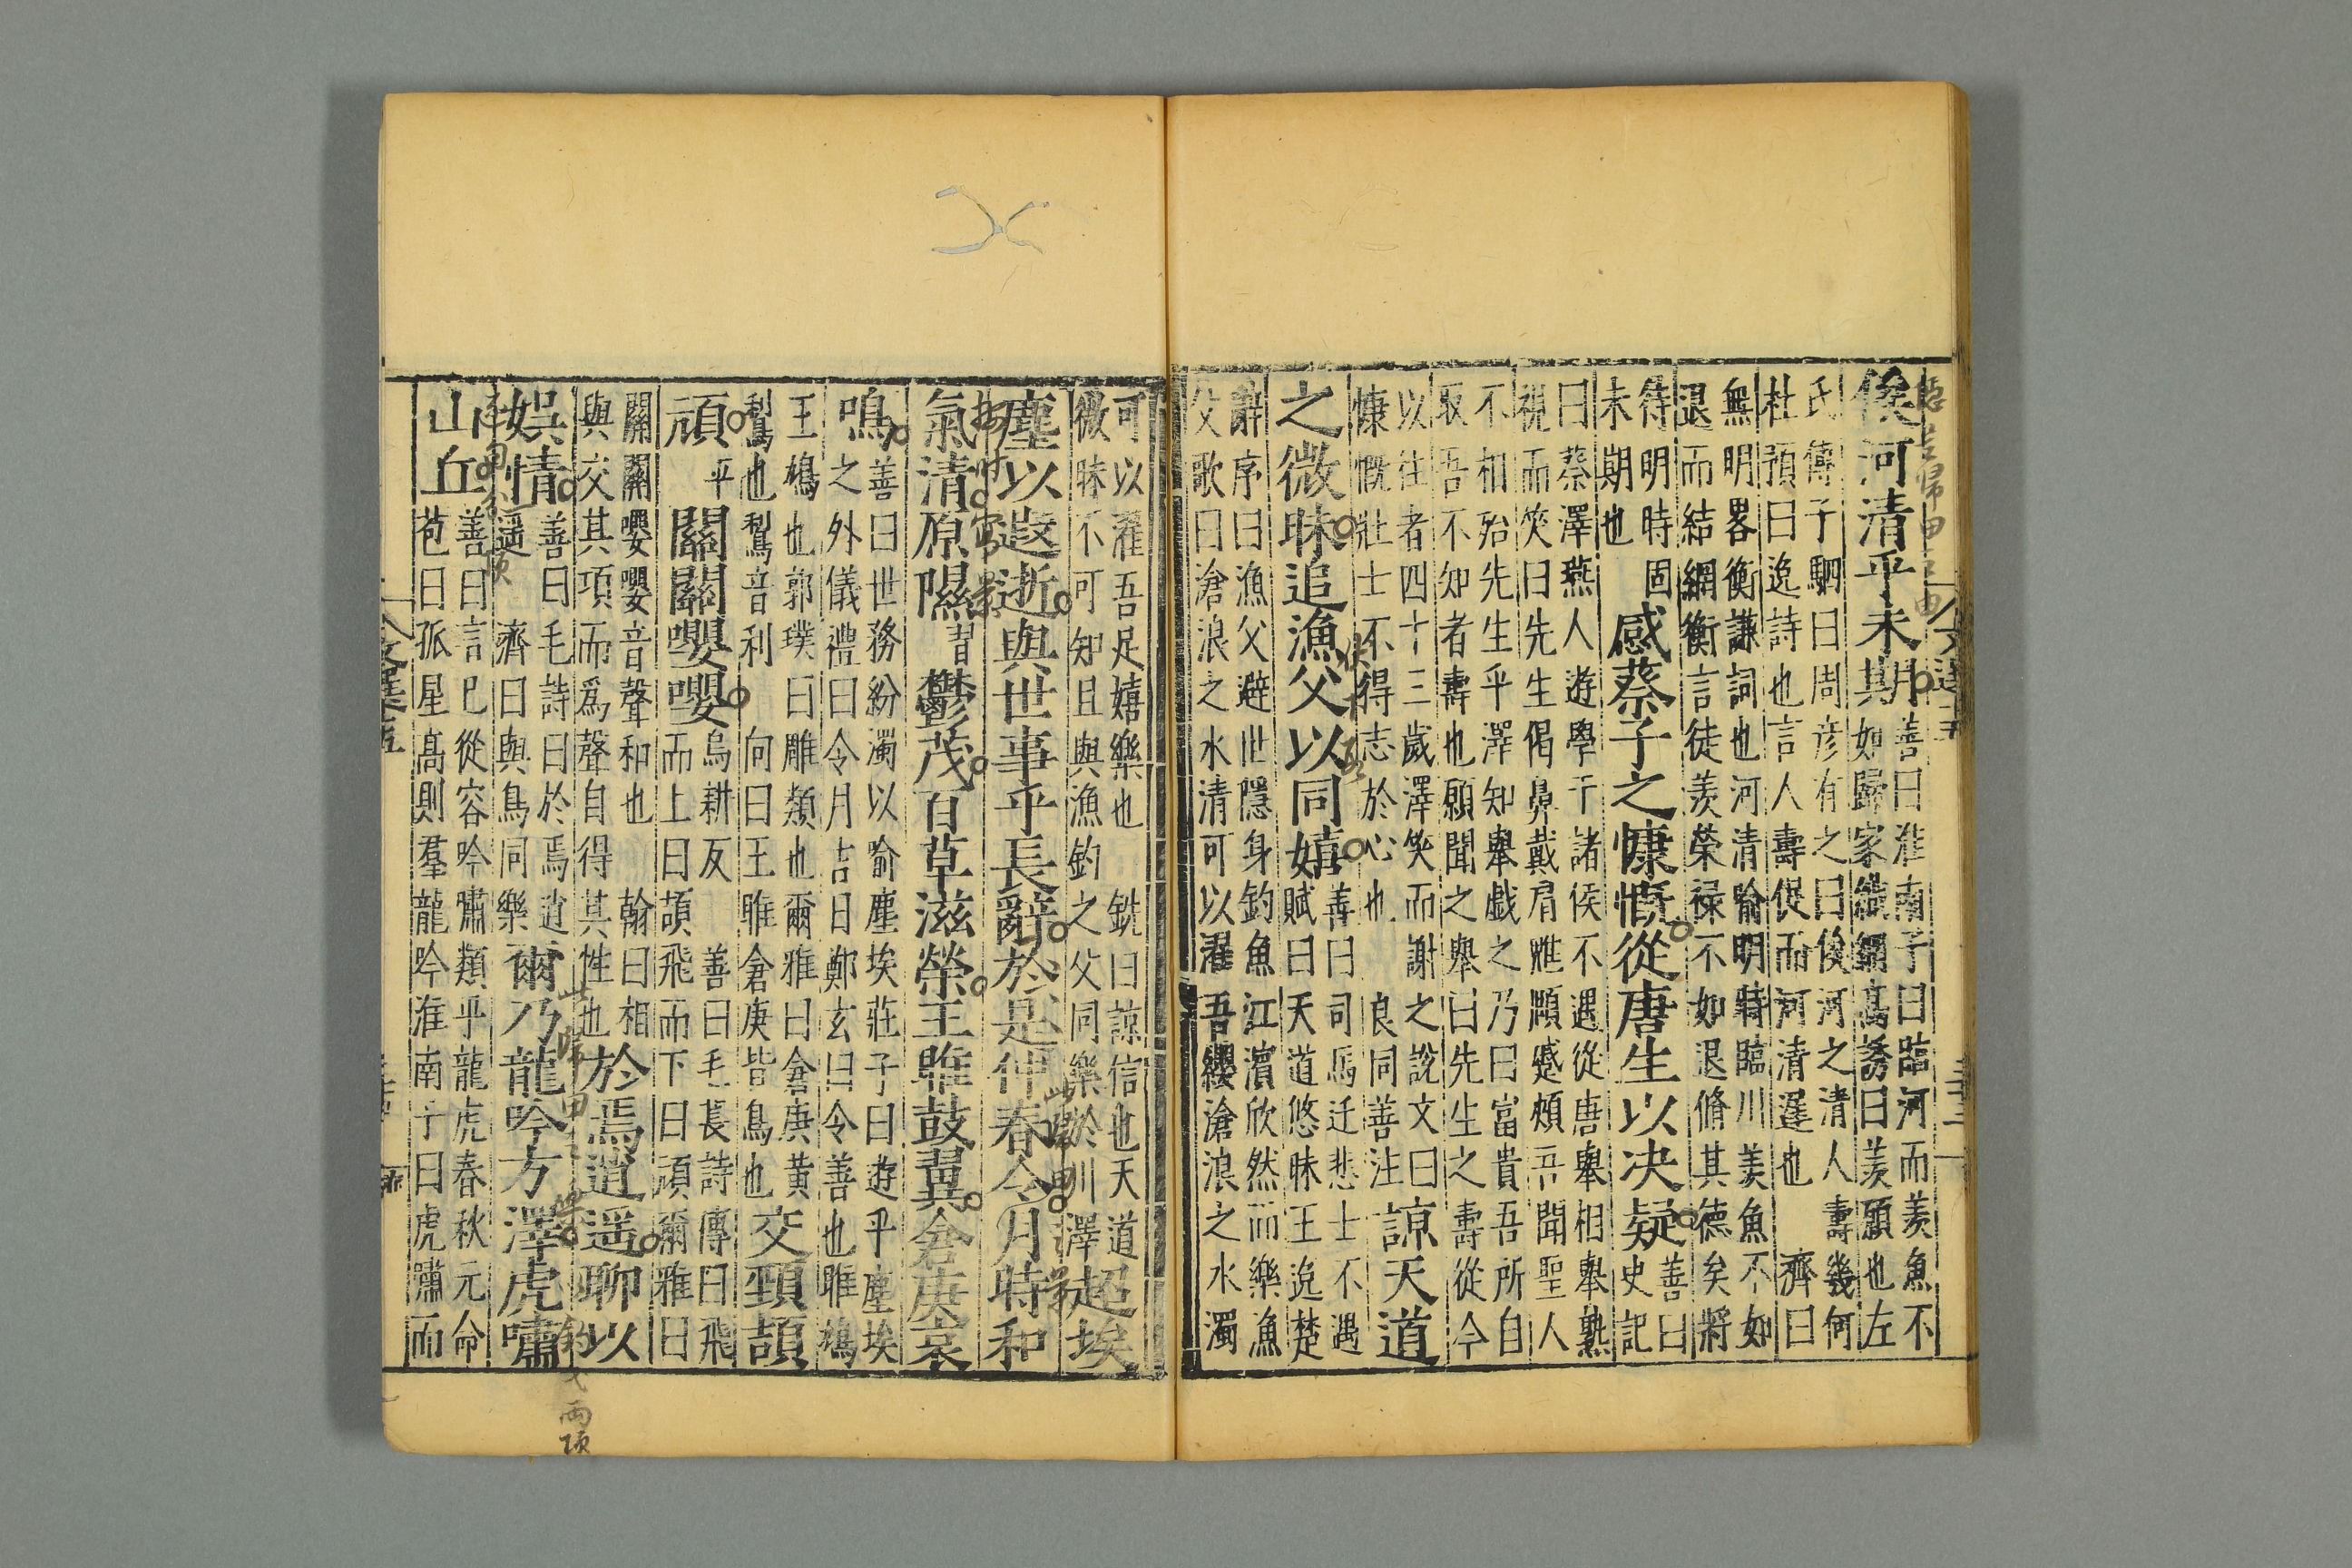 俟河清乎未期
善曰淮南子曰臨河而羨魚不
如歸家織網高誘曰羨願也左
氏傳子駟曰周彦有之曰俟河之清人壽幾何
杜預曰逸詩也言人壽促而河清遲也
濟曰
無明畧衡謙詞也河清喻明時臨川羨魚不如
退而結網衡言徒羨榮禄不如退脩其德矣將
待明明時固
未期也
感蔡子之慷慨從唐生以决疑
善曰
史記
曰蔡澤燕人遊學干諸侯不遇從唐舉相舉熟
視而笑曰先生偈鼻戴肩魋顏蹙頞吾聞聖人
不相殆先生乎澤知舉戲之乃曰富貴吾所自
取吾不知者壽也願聞之舉曰先生之壽從今
以往者四十三歲澤笑而謝之說文曰
慷慨壯士不得志於心也
良同善注
諒天道
之微昧追漁父以同嬉
善曰司馬迁悲士不遇
賦曰天道悠昧王逸楚
辭序曰漁父避世隱身釣魚江濱欣然而樂漁
父歌曰滄浪之水清可以濯吾纓滄浪之水濁
可以濯吾足嬉樂也
銑曰諒信也天道
微昧不可知且與漁釣之父同樂於川澤
超埃
塵以遐逝與世事乎長辭於是仲春令月時和
氣清原隰
習
鬱茂百草滋榮王雎鼓翼倉庚哀
鳴
善曰世務紛濁以喻塵埃莊子曰遊乎塵埃
之外儀禮曰令月吉日鄭玄曰令善也雎鳩
王鵙也郭璞曰雕類也爾雅曰倉庚黄
鵹也鵹音利
向曰王雎倉庚皆鳥也
交頸頡
頏
平
關關嚶嚶
烏耕反
善曰毛萇詩傳曰飛
而上曰頡飛而下曰頏爾雅曰
關關嚶嚶音聲和也
翰曰相
與交其項而爲聲自得其性也
於焉逍遥聊以
娯情
善曰毛詩曰於焉逍
遥
濟曰與鳥同樂
爾乃龍吟方澤虎嘯
山丘
善曰言巳從容吟嘯類乎龍虎春秋元命
苞曰孤星高則羣龍吟淮南子曰虎嘯而